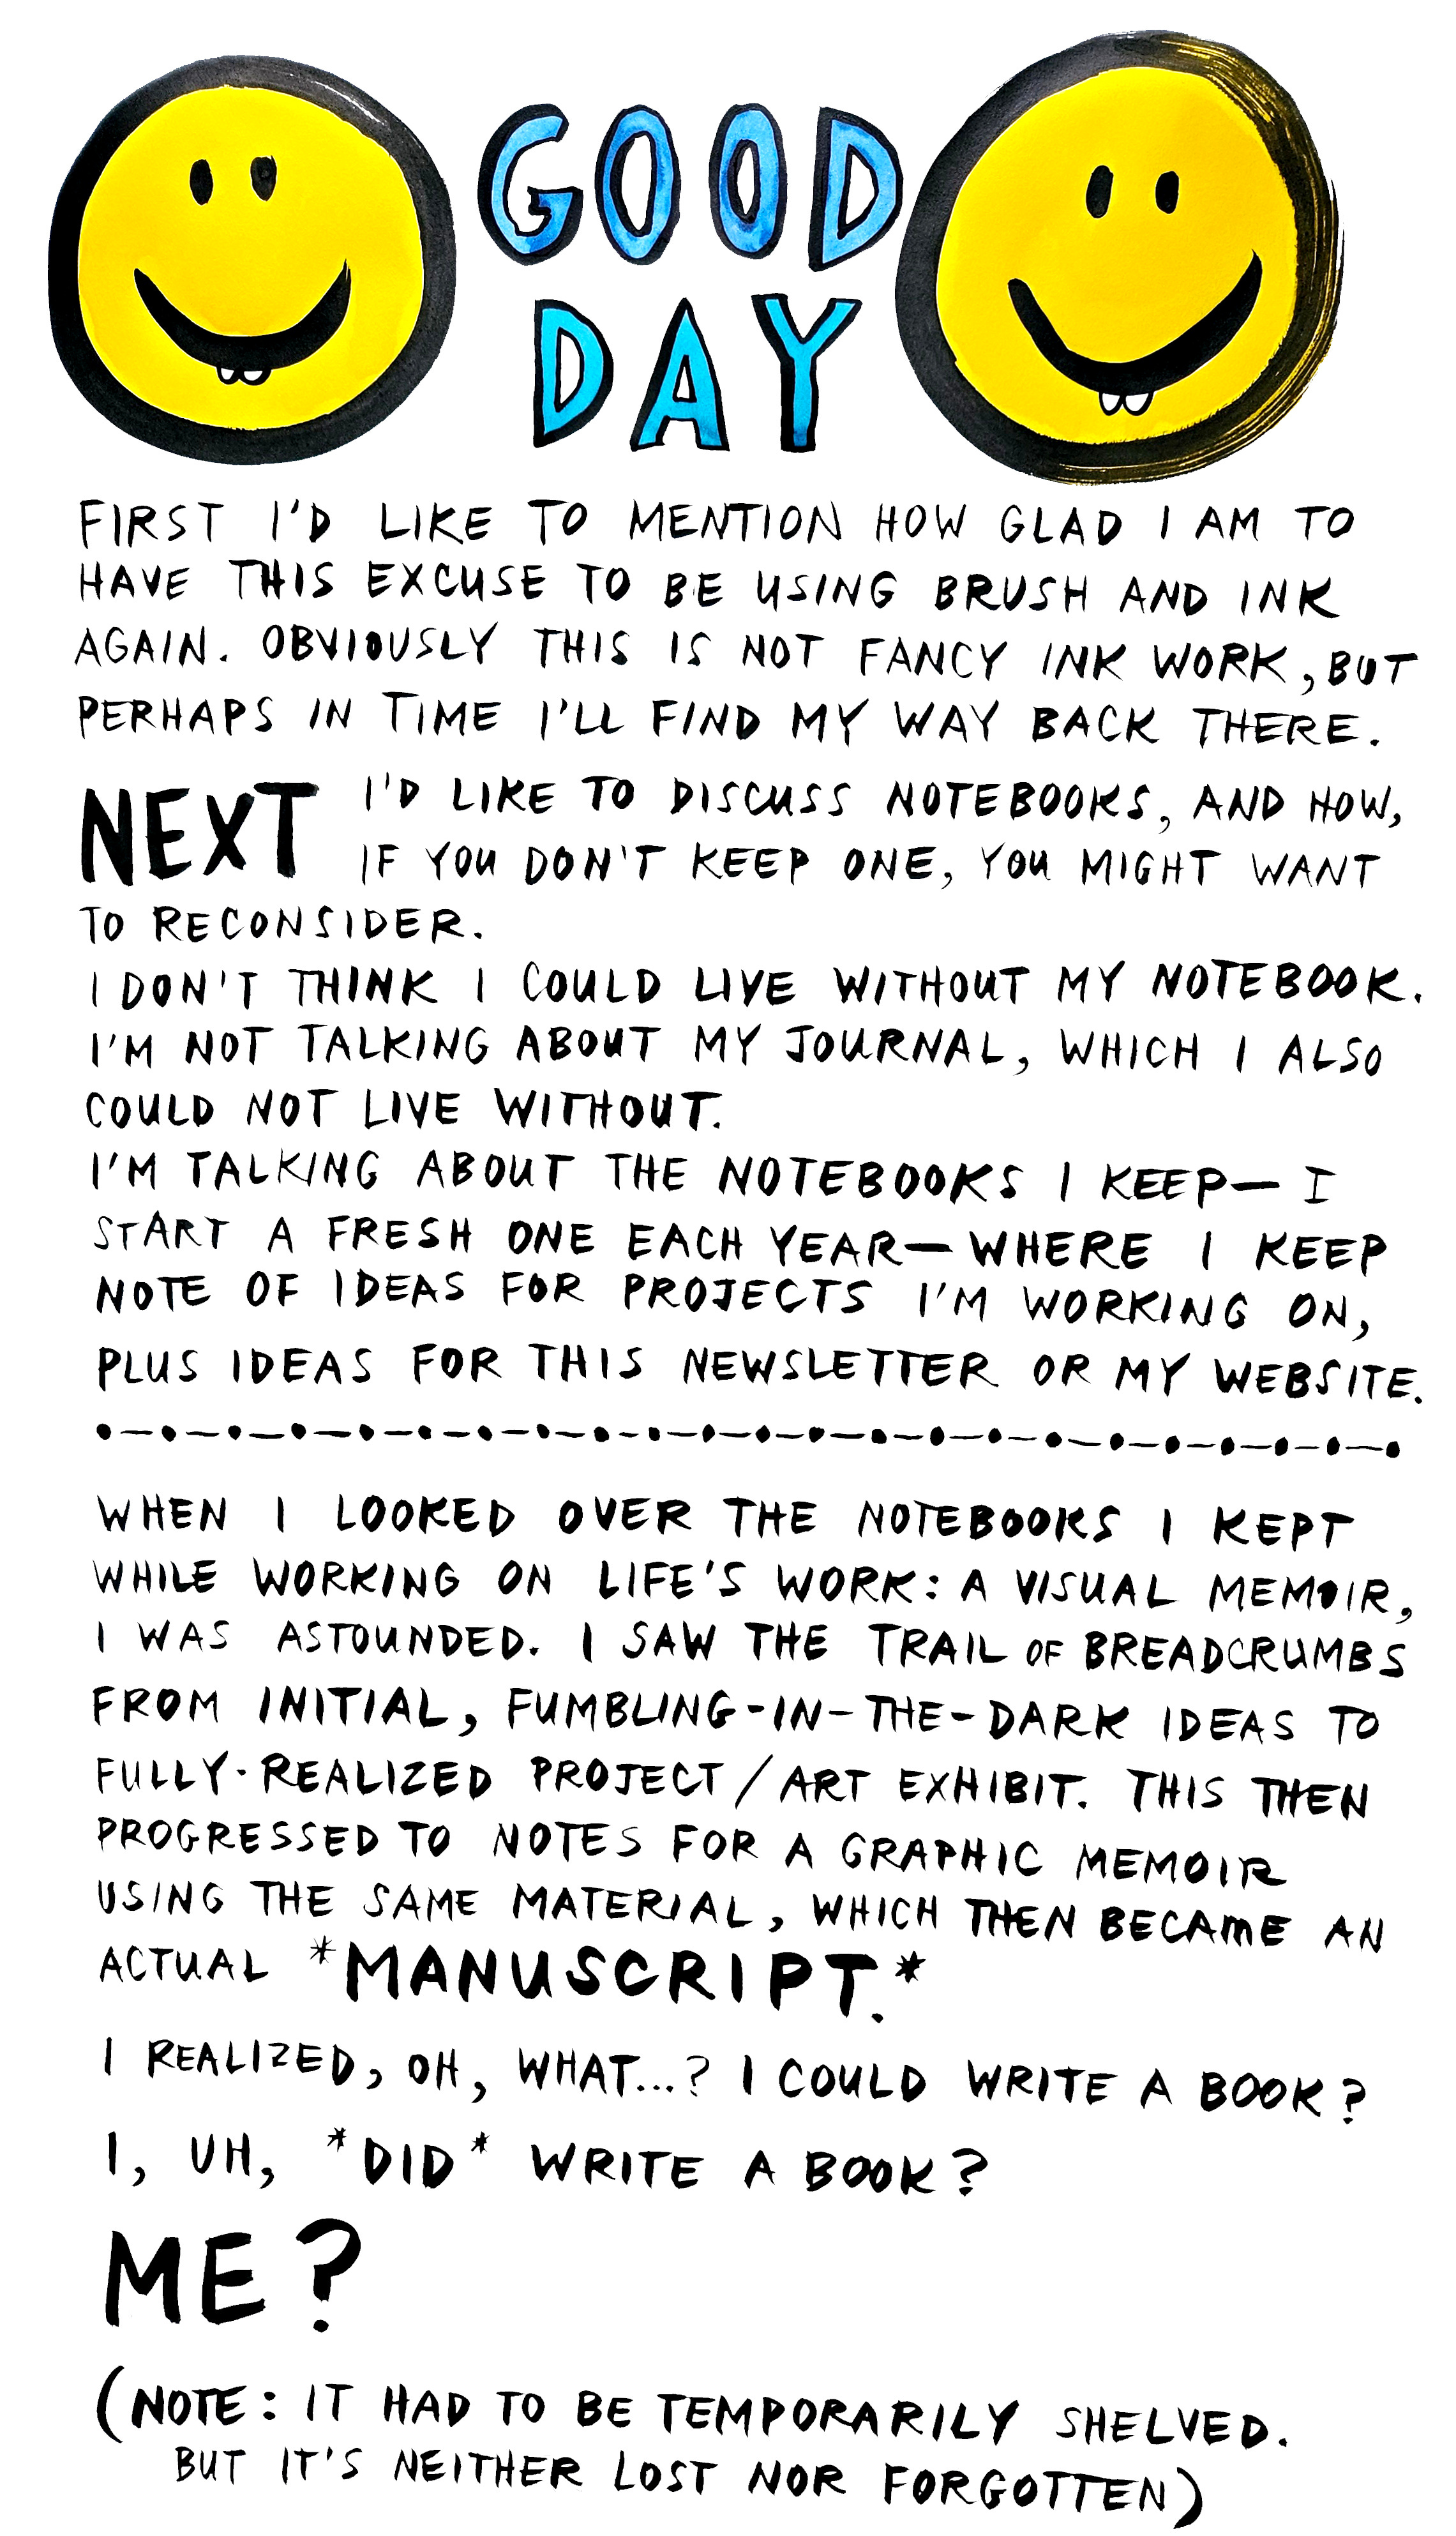 GOOD
DAY
FIRST I'D LIKE TO MENTION HOW GLAD I AM TO
HAVE THIS EXCUSE TO BE USING BRUSH AND INK
AGAIN. OBVIOUSLY THIS IS NOT FANCY INK WORK, BUT
PERHAPS IN TIME I'LL FIND MY WAY BACK THERE.
NEXT I'D LIKE TO DISCUSS NOTEBOOKS, AND HOW,
IF YOU DON'T KEEP ONE, YOU MIGHT WANT
TO RECONSIDER.
I DON'T THINK I COULD LIVE WITHOUT MY NOTEBOOK.
I'M NOT TALKING ABOUT MY JOURNAL, WHICH I ALSO
COULD NOT LIVE WITHOUT.
I'M TALKING ABOUT THE NOTEBOOKS I KEEP— I
START A FRESH ONE EACH YEAR—WHERE I KEEP
NOTE OF IDEAS FOR PROJECTS I'M WORKING ON,
PLUS IDEAS FOR THIS NEWSLETTER OR MY WEBSITE.
WHEN I LOOKED OVER THE NOTEBOOKS I KEPT
WHILE WORKING ON LIFE'S WORK: A VISUAL MEMOIR,
I WAS ASTOUNDED. I SAW THE TRAIL OF BREADCRUMBS
FROM INITIAL, FUMBLING-IN-THE-DARK IDEAS TO
FULLY-REALIZED PROJECT/ART EXHIBIT. THIS THEN
PROGRESSED TO NOTES FOR A GRAPHIC MEMOIR
USING THE SAME MATERIAL, WHICH THEN BECAME AN
ACTUAL *MANUSCRIPT.*
I REALIZED, OH, WHAT...? I COULD WRITE A BOOK?
I, UH, *DID* WRITE A BOOK?
ME?
(NOTE: IT HAD TO BE TEMPORARILY SHELVED.
BUT IT'S NEITHER LOST NOR FORGOTTEN)